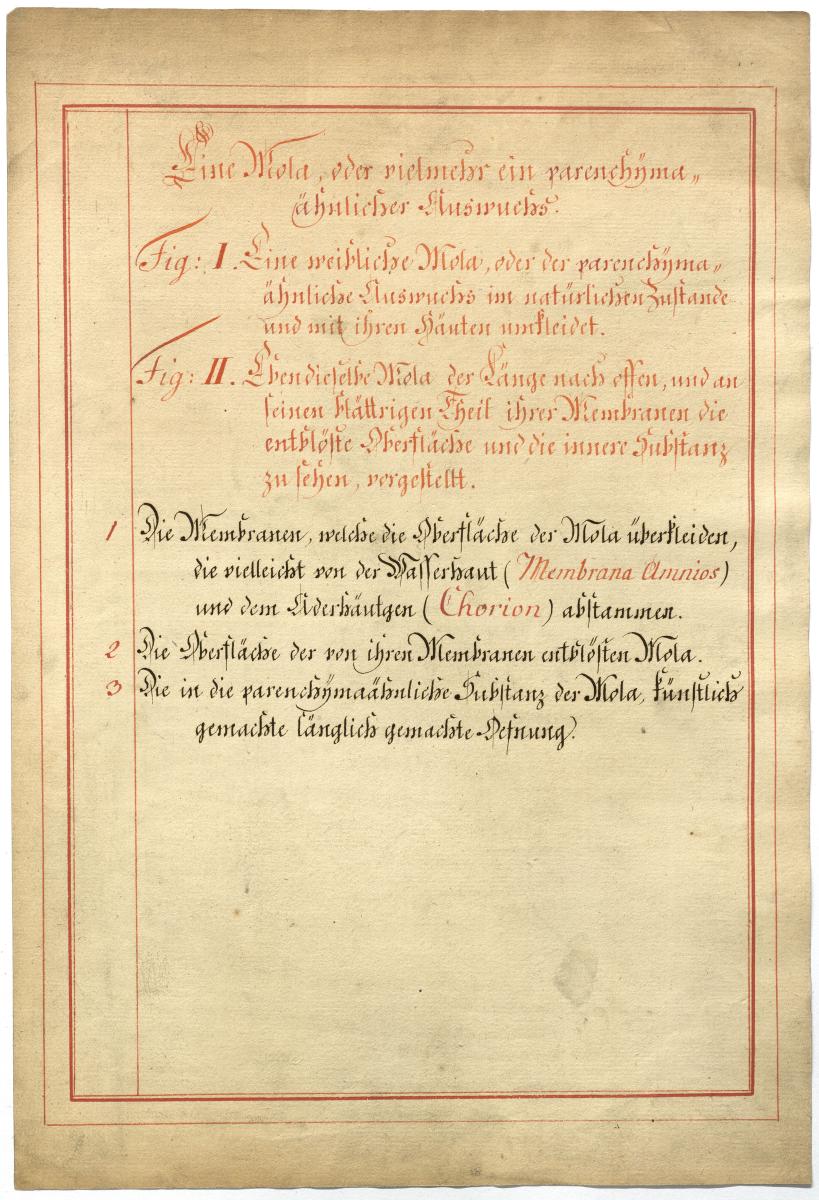 Eine Mola, oder vielmehr ein parenchÿma„
ähnlicher Auswuchs.
Fig: I. Eine weibliche Mola, oder der parenchÿma„
ähnliche Auswuchs im natürlichen Zustande
und mit ihren Häuten umkleidet.
Fig: II. Ebendieselbe Mola der Länge nach offen, und an
seinen blättrigen Theil ihrer Membranen die
entblöste Oberfläche und die innere Substanz
zu sehen, vorgestellt.
1 Die Membranen, welche die Oberfläche der Mola überkleiden,
die vielleicht von der Wasserhaut (Membrana Amnios)
und dem Aderhäutgen (Chorion) abstammen.
2 Die Oberfläche der von ihren Membranen entblösten Mola.
3 Die in die parenchÿmaähnliche Substanz der Mola, künstlich
gemachte länglich gemachte Oefnung.